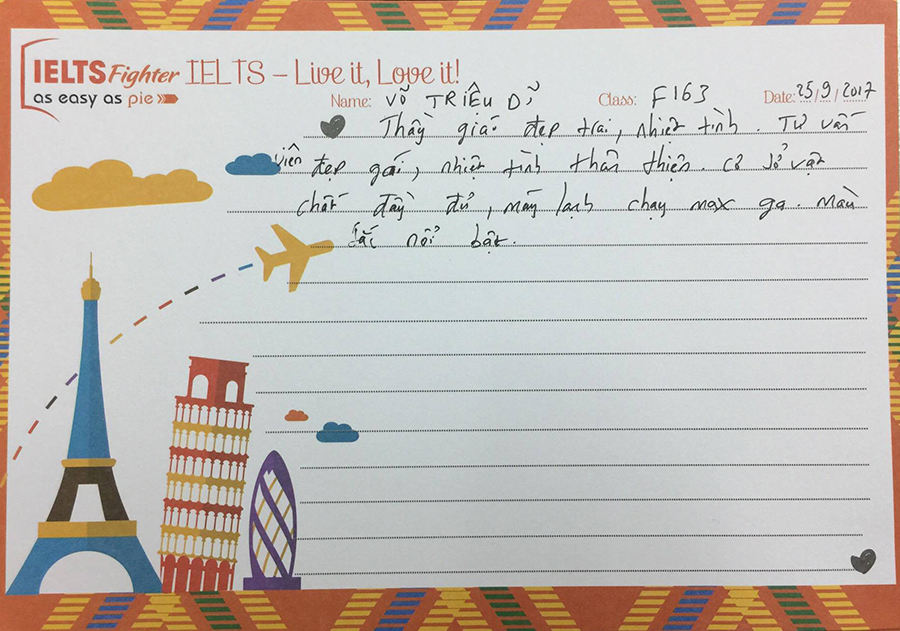 IELTS Fighter IELTS – Live it, Love it!
as easy as pie
Name: VÕ TRIỆU DĨ Class: F163 Date: 25/9/2017
Thầy giáo đẹp trai, nhiệt tình. Tư vấn
viên đẹp gái, nhiệt tình thân thiện. Cơ sở vật
chất đầy đủ, máy lạnh chạy max ga. Màu
sắc nổi bật.